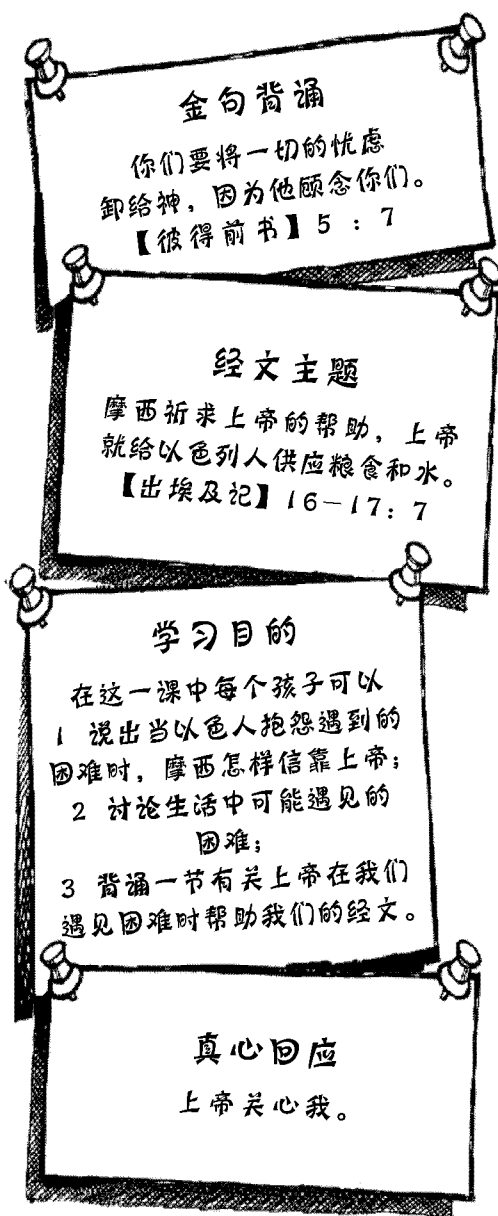 金句背诵
你们要将一切的忧虑
卸给神，因为他顾念你们。
【彼得前书】5：7
经文主题
摩西祈求上帝的帮助，上帝
就给以色列人供应粮食和水。
【出埃及记】16－17：7
学习目的
在这一课中每个孩子可以
1 说出当以色人抱怨遇到的
困难时，摩西怎样信靠上帝；
2 讨论生活中可能遇见的
困难；
3 背诵一节有关上帝在我们
遇见困难时帮助我们的经文。
真心回应
上帝关心我。